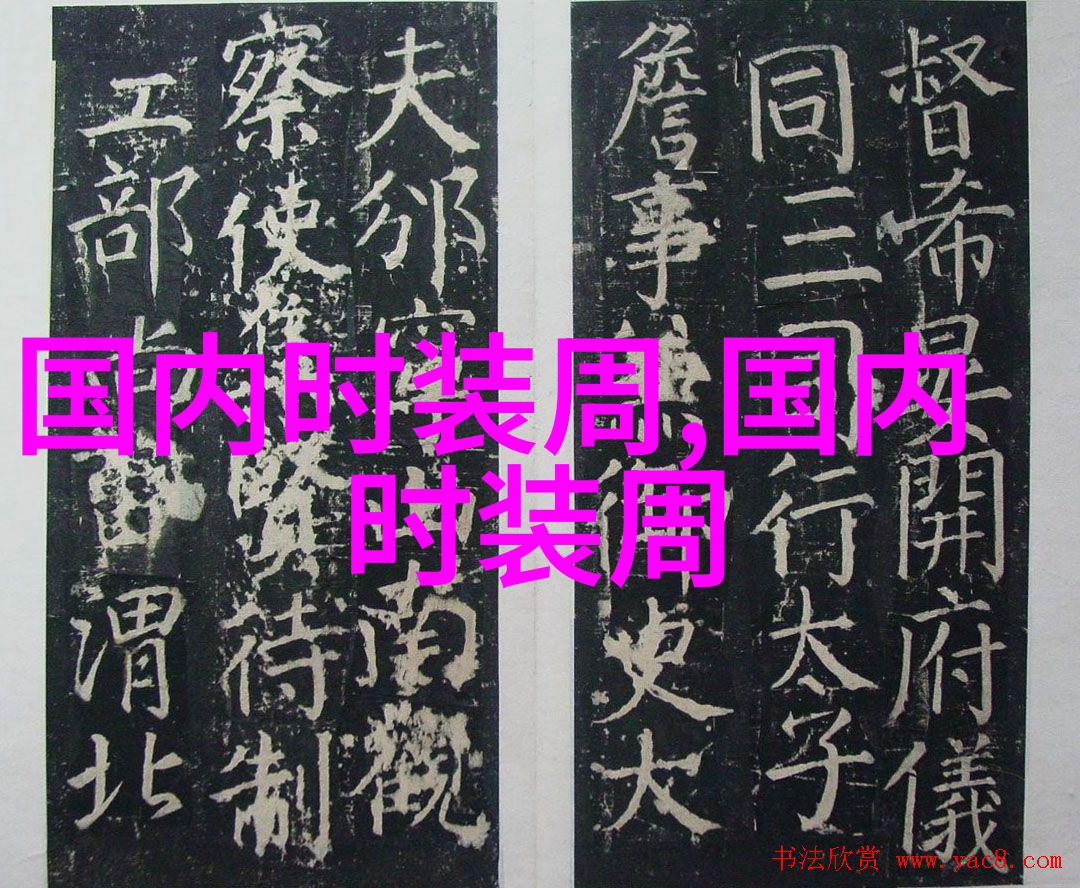 国内时装周,国内
时装周
督希開府儀
同三司行太子
詹事兼御史大
夫邠寧山南觀
察使賢待制
工部渭北
书法欣赏 www.yac8.com